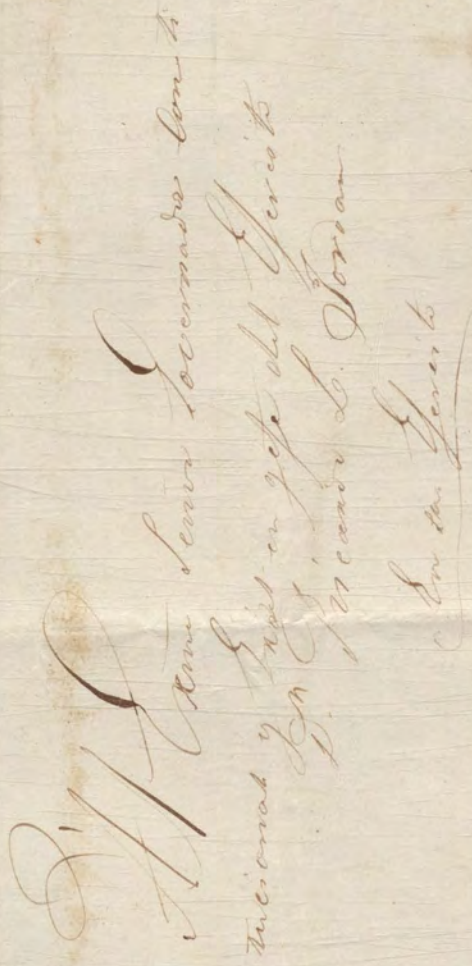 Al
Exmo Senor Governador Consti
tucional y Gral en gefe del Egercito
Dn Ricardo L. Jordan
En su Egercito